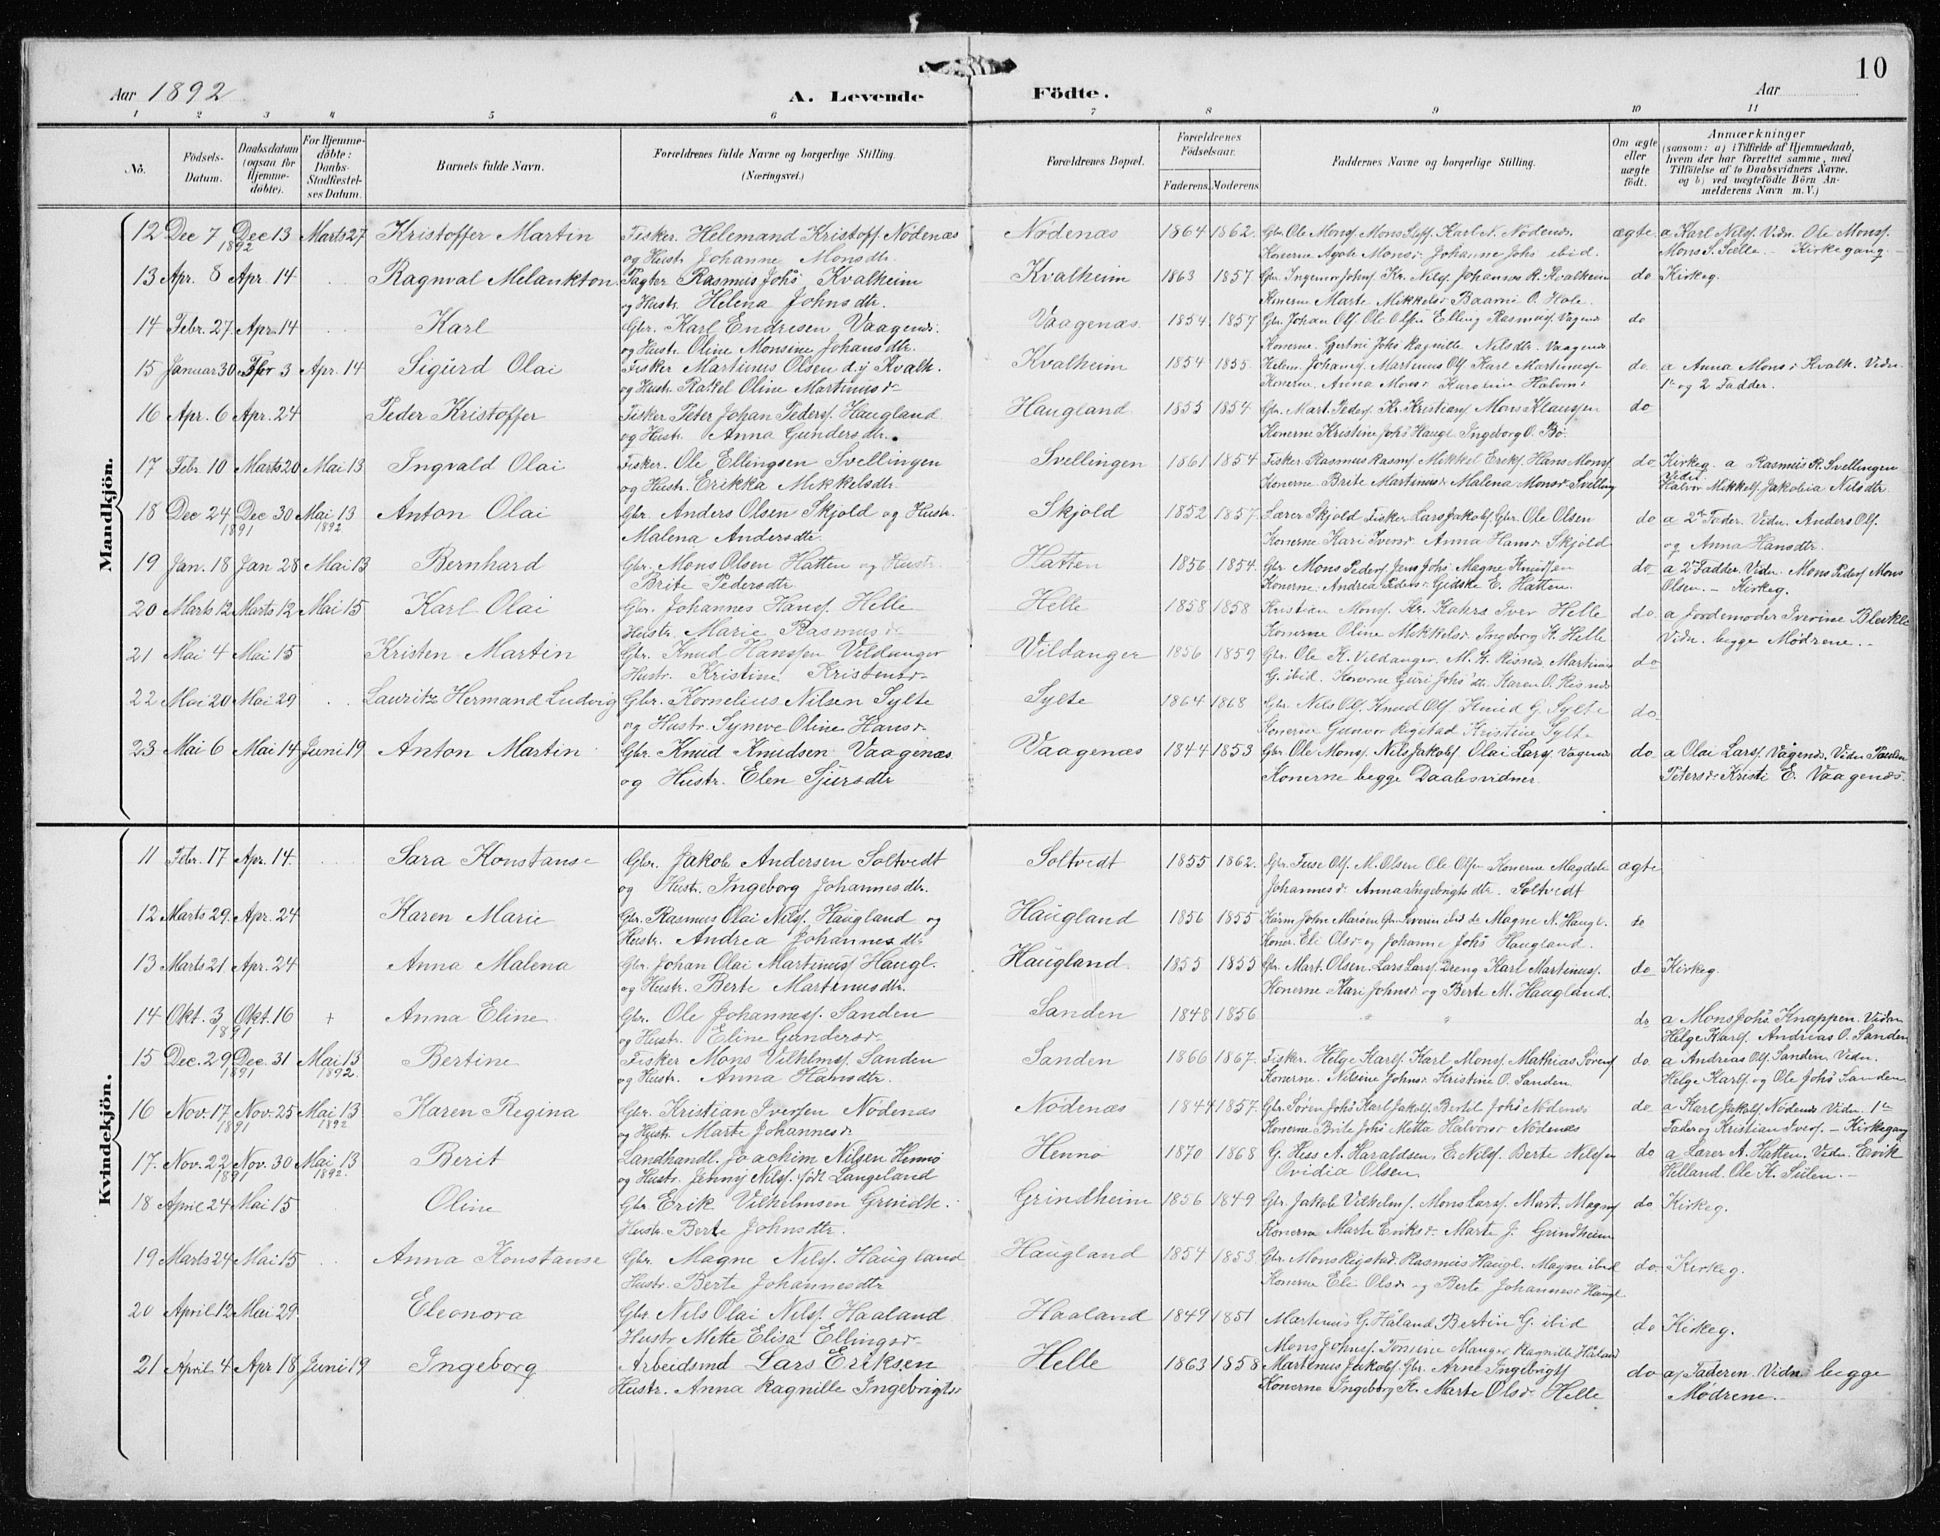 10
Aar 1892
A. Levende Födte.
Aar
1 2 3 4 5 6 7 8 9 10 11
No.
Födsels-Datum.
Daabsdatum (ogsaa for Hjemme-döbte).
For Hjemme-döbte: Daabs-Stadfæstel-ses Datum.
Barnets fulde Navn.
Forældrenes fulde Navne og borgerlige Stilling. (Næringsvei.)
Forældrenes Bopæl.
Forældrenes Födselsaar.
Faderens. Moderens.
Faddernes Navne og borgerlige Stilling.
Om ægte eller uægte födt.
Anmærkninger
(saasom: a) i Tilfælde af Hjemmedaab, hvem der har forrettet samme, med Tilföielse af to Daabsvidners Navne. og b) ved uægtefödte Börn An-melderens Navn m. V.)
Mandkjön.
12 Dec 7 Dec 13 Marts 27 Kristoffer Martin Fisker. Helemand Kristoff. Nödenæs Nödenæs 1864 1862. Gbr Ole Monss. Mons Karl N. Nödenæs ægte. a Karl Nilss. Vidn. Ole Monss.
1892 og Hustr. Johanne Monsdtr. Konerne Agate Monsdr Johanne Johs ibid. Mons S. Kirkegang
13 Apr. 8 Apr. 14 Ragnval Melankton Rasmus Johs Kvalheim Kvalheim 1863 1857 Gbr. Kr. Nilss. Johannes R. Kvalheim do Kirkeg.
og Hustr. Helena Johnsdtr. Konerne Marte Mikkelsdr O. Hole.
14 Febr. 27 Apr. 14 Karl Gbr. Karl Endresen Vaagenæs. Vaagenæs. 1854. 1857 Gbr. Johan Ols. Ole Olsen Elling Rasmuss. do
og Hustr. Oline Monsine Johansdtr. Konerne Johs Ragnille Nilsdtr. Vaagenæs
15 Januar 30 3 Apr. 14 Sigurd Olai Fisker Martinus Olsen d.y. Kvalh. Kvalheim 1854 1855. Johans. Martinus Ols Karl Martinuss do. a Anna Monsdr Kvalh. Vidn.
og Hustr. Rakel Oline Martinusdr Konerne. Anna Monsdr Karoline Halvordr 1ste og 2 Fadder.
16 Apr. 6 Apr. 24 Peder Kristoffer Fisker Peter Johan Peders. Haugland Haugland 1855 1854 Gbr. Mart. Peders Kr. Kristians Mons Klaussen do
og Hustr. Anna Gundersdtr. Konerne Kristine Johs Haugl. Ingeborg O. Bö.
17 Febr. 10 Marts 20 Mai 13 Ingvald Olai Fisker. Ole Ellingsen Svellingen Svellingen 1861 1854 Fisker Rasmus Rasms Mikkel Eriks. Hans Monss do Kirkeg. a Rasmus R. Svellingen
og Hustr. Erikka Mikkelsdtr. Konerne Brite Martinusdr Malena Monsdr Svelling Vidn. Halvor Mikkels Jakobia Nilsdtr.
18 Dec 24 Dec 30 Mai 13 Anton Olai Gbr. Anders Olsen Skjold og Hustr. Skjold 1852 1857. Lærer Skjold Fisker Lars Jakobs. Gbr. Ole Olsen do a 2den Fader. Vidn. Anders Ols.
1891 1892 Malena Andersdtr. Konerne Kari Iversdr Anna Hansdr Skjold og Anna Hansdtr.
19 Jan. 18 Jan 28 Mai 13 Bernhard Gbr. Mons Olsen Hatten og Hustr. Hatten 1856 1854. Gbr Mons Peders Jens Johs. Magne Knudsen do a 2den Fadder. Vidn. Mons Peders Mons
Brite Pedersdtr. Konerne. Andrea Pedersdr Gidske E. Hatten Olsen. – Kirkeg.
20 Marts 12 Marts 12 Mai 15 Karl Olai Gbr. Johannes Hanss. Helle Helle 1858 1858 Kristian Monss. Kr. Kahrs Iver Helle do a Jordemoder Blækle
Hustr. Marie Rasmusdr Konerne Oline Mikkelsdr Ingeborg K. Helle Vidn. begge Mödrene.
21 Mai 4 Mai 15 Kristen Martin Gbr. Knud Hanssen Vildanger Vildanger 1856 1859 Gbr. Ole K. Vildanger. M. K. Risnæs Martinus do
Hustr. Kristine Kristensdr G. ibid. Konerne Guri Johsdtr. Karen O. Risnæs
22 Mai 20 Mai 29 Lauritz Hermand Ludvig Gbr. Kornelius Nilsen Sylte Sylte 1864 1868 Gbr. Nils Ols. Knud Ols Knud G. Sylte do
og Hustr. Synneve Oline Hansdr Konerne Gunvor Rigstad Kristine Sylte
23 Mai 6 Mai 14 Juni 19 Anton Martin Gbr. Knud Knudsen Vaagenæs Vaagenæs 1844 1853 Gbr. Ole Monss. Nils Jakobs Olai Larss. Vagenæs do a Olai Larss. Vågenæs. Vidn
og Hustr. Elen Sjursdtr Konerne begge Daabsvidner. Petersdr Kristi E. Vaagenæs.
Kvindekjön.
11 Febr. 17 Apr. 14. Sara Konstanse Gbr. Jakob Andersen Soltvedt Soltvedt 1855 1862. Gbr. Ols. M. Olsen Ole Olsen Konerne Magdele ægte
og Hustr. Ingeborg Johannesdtr. Johannesdr Anna Ingebrigtsdtr. Soltvedt
12 Marts 29. Apr. 24 Karen Marie Gbr. Rasmus Olai Nilss. Haugland og Haugland 1856 1855 Severin ibid Magne N. Haugl. do
Hustr. Andrea Johannesdtr Koner. Eli Olsdr og Johanne Johs Haugland.
13 Marts 21 Apr. 24 Anna Malena Gbr. Johan Olai Martinuss. Haugl. Haugland. 1855 1855 Gbr. Mart. Olsen. Lars Larss. Dreng Karl Martinuss. do Kirkeg.
og Hustr. Berte Martinusdtr. Konerne Kari Johnsdr og Berte M. Haugland.
14 Okt. 3 Okt. 16 + Anna Eline Gbr. Ole Johanness. Sanden Sanden 1848 1856 " " do a Mons Johs Knappen. Vidn
1891 og Hustr. Eline Gundersdr Helge Karls. Andreas O. Sanden
15 Dec. 29 Dec. 31 Mai 13 Bertine Fisker Mons Vilhelms. Sanden Sanden 1866 1867. Fisker. Helge Karls. Karl Monss. Mathias Sörens do. a Andreas Ols Sanden Vidn.
1891 1892. og Hustr. Anna Hansdtr. Konerne. Nilsine Johnsdr Kristine O. Sanden. Helge Karls. og Ole Johs Sanden
16 Nov. 17 Nov. 25 Mai 13 Karen Regina Gbr. Kristian Iversen Nödenæs Nödenæs 1844 1857. Gbr. Sören Johs Karl Jakobs. Bertel Johs Nödenæs do. a Karl Jakobs. Nödenæs Vidn. 1ste
1891 1892 og Hustr. Marte Johannesdr Konerne Brite Johs Metta Halvorsdr Nödenæs Fader og Kristian Ivers. – Kirkegang
17. Nov. 22 Nov. 30 Mai 13 Berit Landhandl. Joachim Nilsen Hennö Hennö 1870 1868 G. Hiss A. Haraldsen, E. Nilss. Berte Nilssen do a Lærer A. Hatten. Vidn. Erik
1891 1892. og Hustr. Jenny Nilss. födt Langeland Ovidia Olsen. Helland Ole K. Sulen.
18 April 24 Mai 15 Oline Gbr. Erik Vilhelmsen Grindh. Grindheim 1856 1849 Gbr. Jakob Vilhelms. Mons Larss. Mart. Magns do Kirkeg.
Hustr. Berte Johnsdtr. Konerne Marte Eriksdr Marte J. Grindheim
19 Marts 24 Mai 15 Anna Konstanse Gbr. Magne Nilss. Haugland Haugland 1854 1853 Gbr. Mons Rigstad. Rasmus Haugl. Magne ibid do. Kirkeg.
Hustr. Berte Johannesdtr Konerne Eli Olsdr og Berte Johannesdr Haugl.
20 April 12 Mai 29. Eleonora Gbr. Nils Olai Nilss. Haaland Haaland 1849 1851 Martinus G. Håland Bertin G. ibid do Kirkeg.
Hustr Mette Elisa Ellingsdr Mons Johnss. Manger Ragnille Håland
21 April 4 Apr 18 Juni 19 Ingeborg Arbeidsmd Lars Eriksen Helle 1863 1858 Martinus Jakobs. Gbr. Arne Ingebrigts do a Faderen. Vidn. begge
Hustr. Anna Ragnille Ingebrigtsdr Konerne Ingeborg K. Marte Olsdr Helle Mödrene.